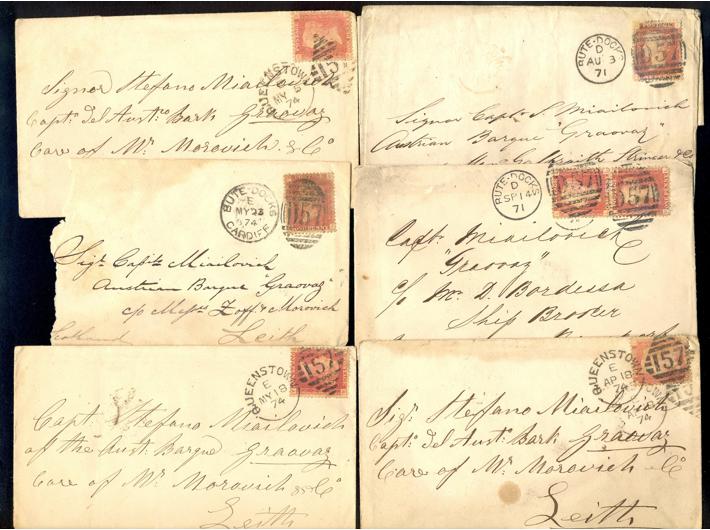 QUEENSTOWN
MY
74
157
Signor Stefano Miailovich
Captn. del Austco Bark Graovaz
Care of Mr. Morovich & Co
BUTE-DOCKS
D
AU 3
71
D57
Signor Capt. S. Miailovich
Austrian Barque "Graovaz"
BUTE-DOCKS
E
MY 23
74
CARDIFF
D57
Sigr Captn Miailovich
Austrian Barque "Graovaz"
c/o Messrs Zoff & Morovich
Scotland Leith
BUTE-DOCKS
D
SP 14
71
D57
D57
Captn Miailovich
"Graovaz"
c/o Mr. D. Bordessa
Ship Broker
QUEENSTOWN
E
MY 18
74
157
Capt Stefano Miailovich
of the Aust: Barque Graovaz
Care of Mr Morovich & Co
Leith
QUEENSTOWN
E
AP 18
74
157
Sigr. Stefano Miailovich
Captn. del Austn. Bark Graovaz
Care of Mr. Morovich & Co
Leith